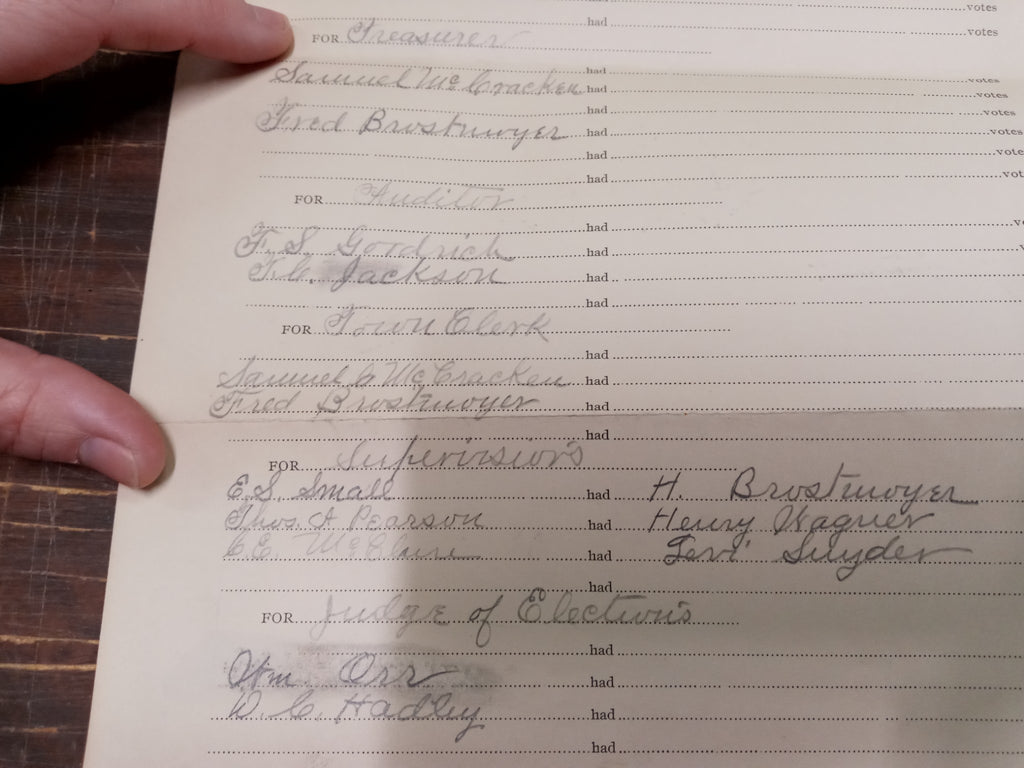 had votes
FOR Treasurer votes
had votes
Samuel McCracken had votes
had votes
Fred Brostmoyer had votes
had votes
had vot
FOR Auditor
had v
F. S. Goodrich had
T. C. Jackson had
had
FOR Town Clerk
had
Samuel G McCracken had
Fred Brostmoyer had
had
FOR Supervisiors
E. S. Small had H. Brostmoyer
Thos. A Pearson had Henry Wagner
had Levi Snyder
had
FOR Judge of Elections
had
Wm Orr had
W. C. Hadley had
had